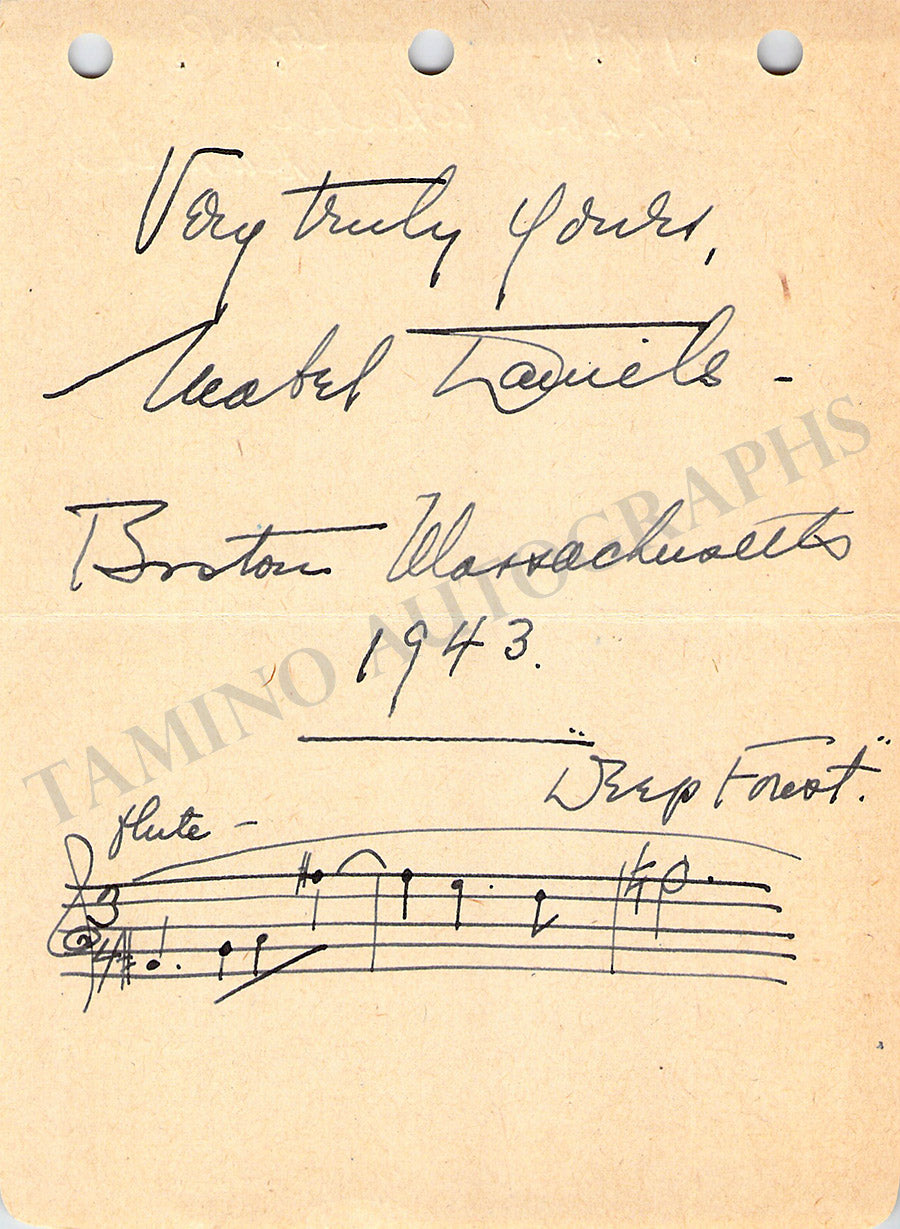 Very truly yours,
Mabel Daniels -
Boston Massachusetts
1943.
"Deep Forest."
flute -
3
4
TAMINO AUTOGRAPHS